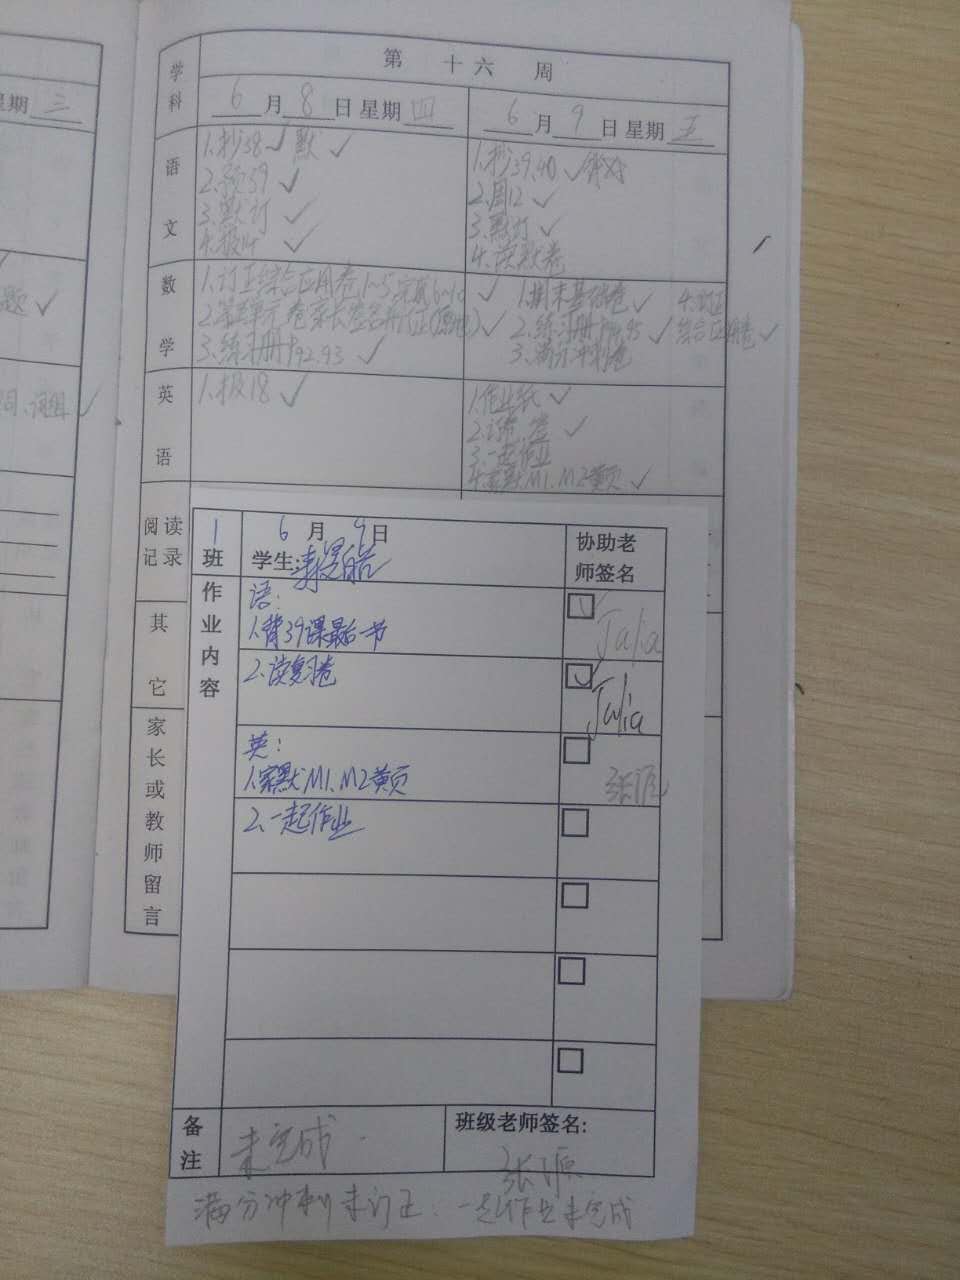 星期三
题✓
词、词组✓
第 十六 周
学科
6月8日 星期四
6月9日 星期五
语文
1.抄38✓ 默✓
2.预39✓
3.默订✓
4.报14✓
1.抄39、40✓
2.周12✓
3.默订✓
4.读默卷
数学
1.订正综合应用卷1~5,完成6~10✓
2.第五单元卷家长签名并订正✓
3.练习册P92.93✓
1.期末基础卷✓
2.练习册P94.95✓
3.满分冲刺卷
4.订正综合应用卷✓
英语
1.报18✓
1.作业纸✓
2.订正、签✓
3.一起作业
4.家默M1、M2黄页✓
阅读记录
其它
家长或教师留言
1班
6月9日
学生:
协助老师签名
作业内容
语:
1.背39课最后一节
Julia
2.读复习卷
Julia
英:
1.家默M1、M2黄页
2.一起作业
备注
未完成
班级老师签名:
满分冲刺未订正、一起作业未完成